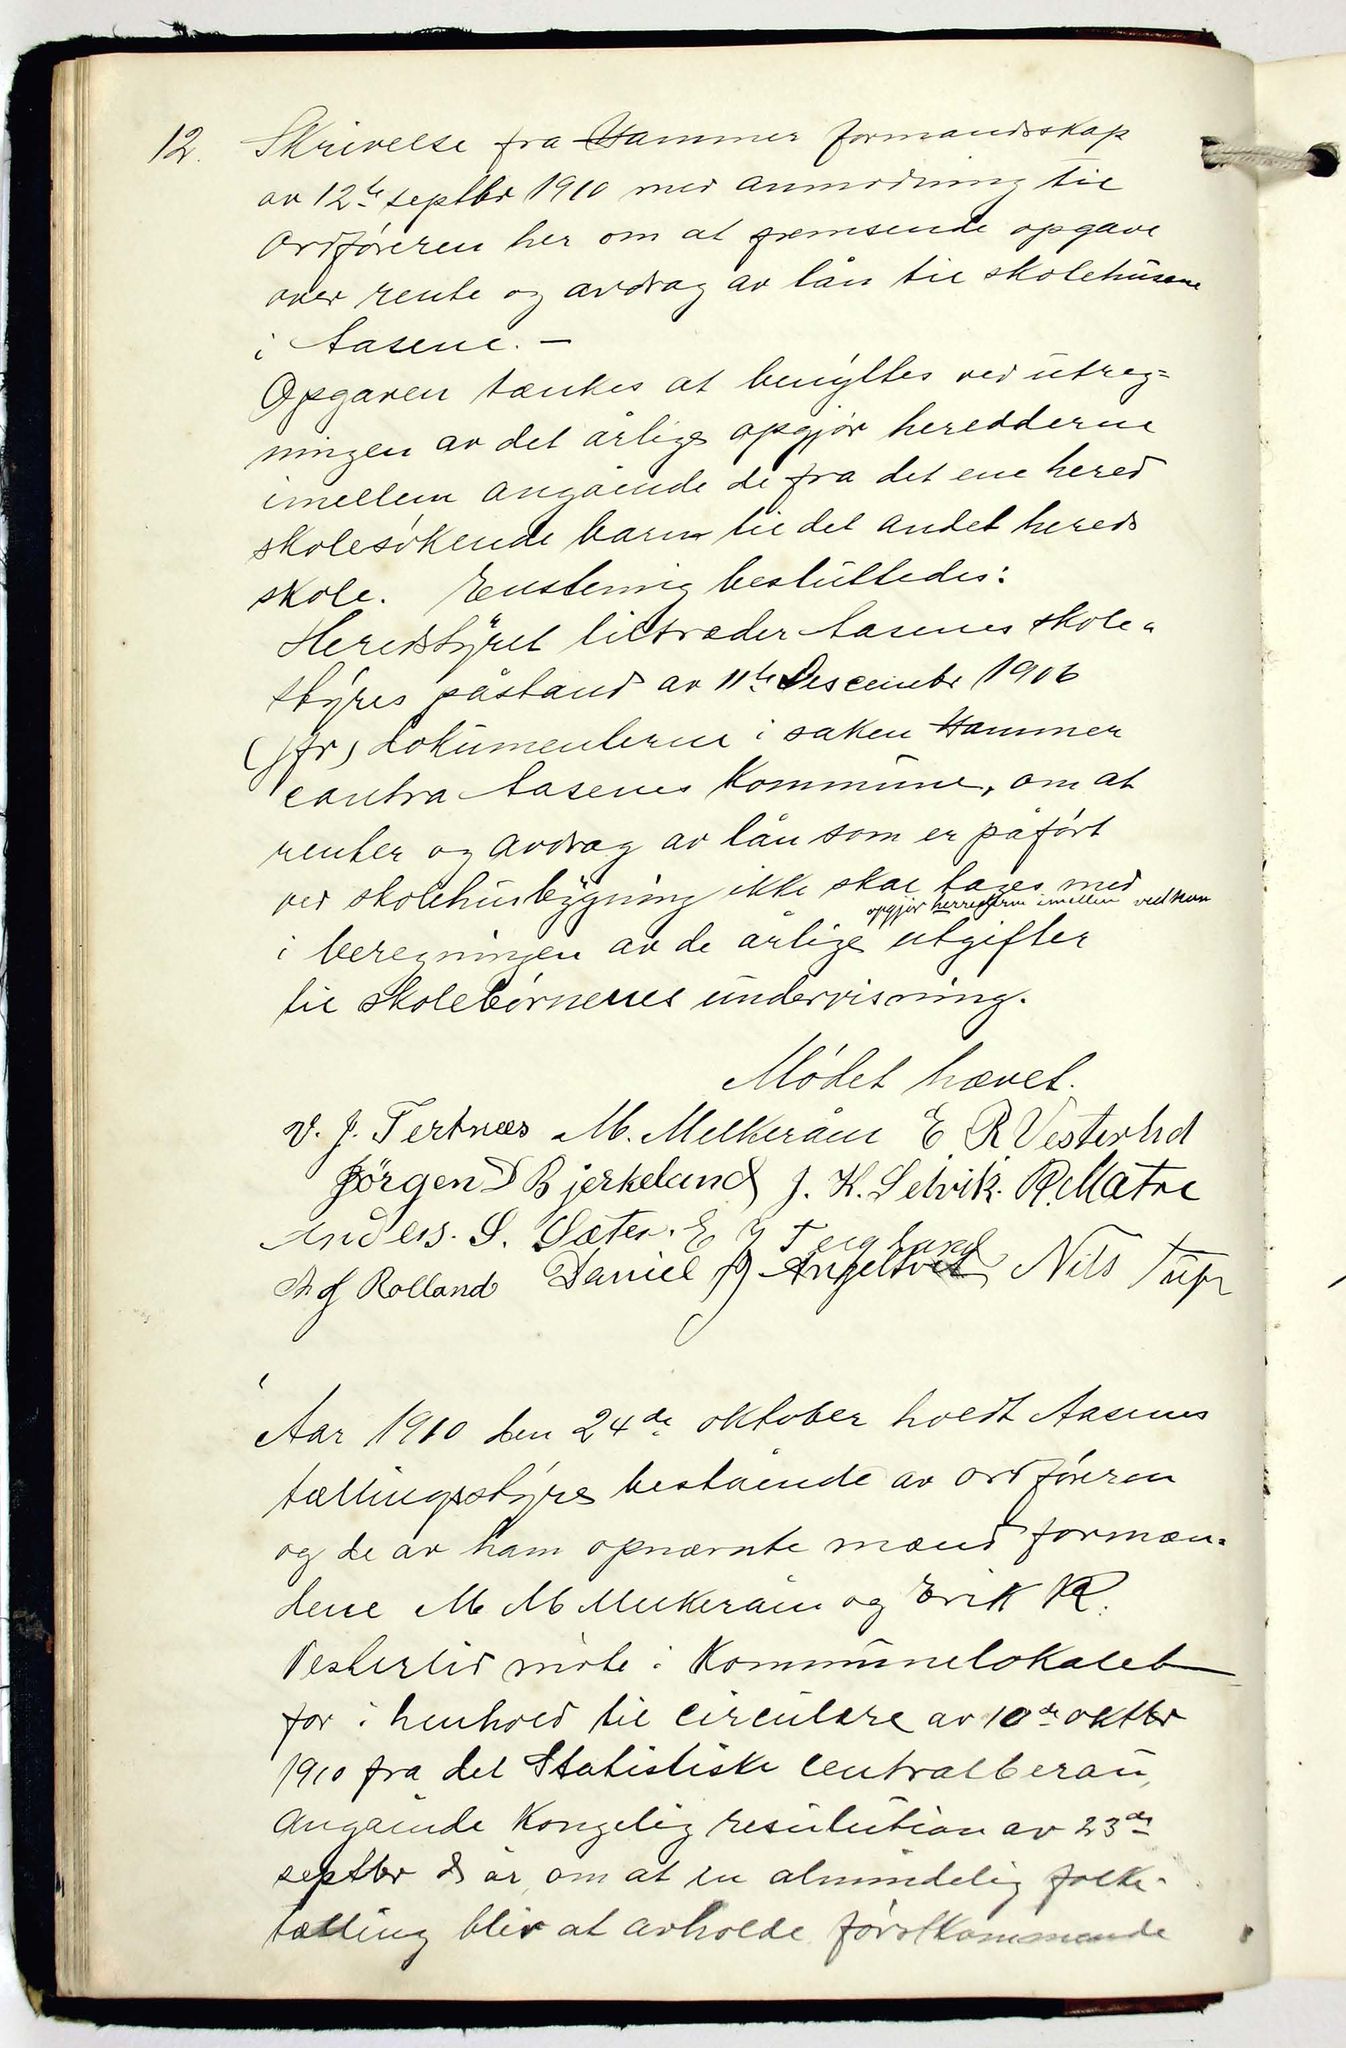 12. Skrivelse fra Hammer formandsskap
av 12te septbr 1910 med anmodning til
Ordföreren her om at fremsende opgave
over rente og avdrag av lån til skolehusene
i Aasene. –
Opgaven tænkes at benyttes ved utreg=
ningen av det årlige opgjör heredderne
imellem angående de fra det ene hered
skolesökende barn til det andet hereds
skole. Enstemig besluttedes:
Heredstyret tiltræder Aasenes skole=
styres påstand av 11te Descembr 1906
(jfr) dokumenterne i saken Hammer
contra Aasenes Kommune, om at
renter og avdrag av lån som er påfört
ved skolehusbygning ikke skal tages med
opgjör herrederne imellem ved
i beregningen av de årlige utgifter
til skolebörnenes undervisning.
Mödet hævet.
V. J. Tertnæs M. Melkeråen E R Vesterlid
Jörgen D Bjerkeland J. K. Selvik. R. Matre
Anders. S. Sæter. E J Teigland
Rolland Daniel J Angeltveit Nils
Aar 1910 den 24de oktober holdt Aasenes
tællingsstyre bestående av ordföreren
og de av ham opnævnte mænd formæn=
dene M M Melkeråen og Erik R.
Vesterlid möte i Kommunelokalet
for i henhold til circulære av 10de oktbr
1910 fra det Statistiske Centralberau,
angående Kongelig resulution av 23de
septbr d år, om at en almindelig folke-
tælling blir at avholde förstkommende